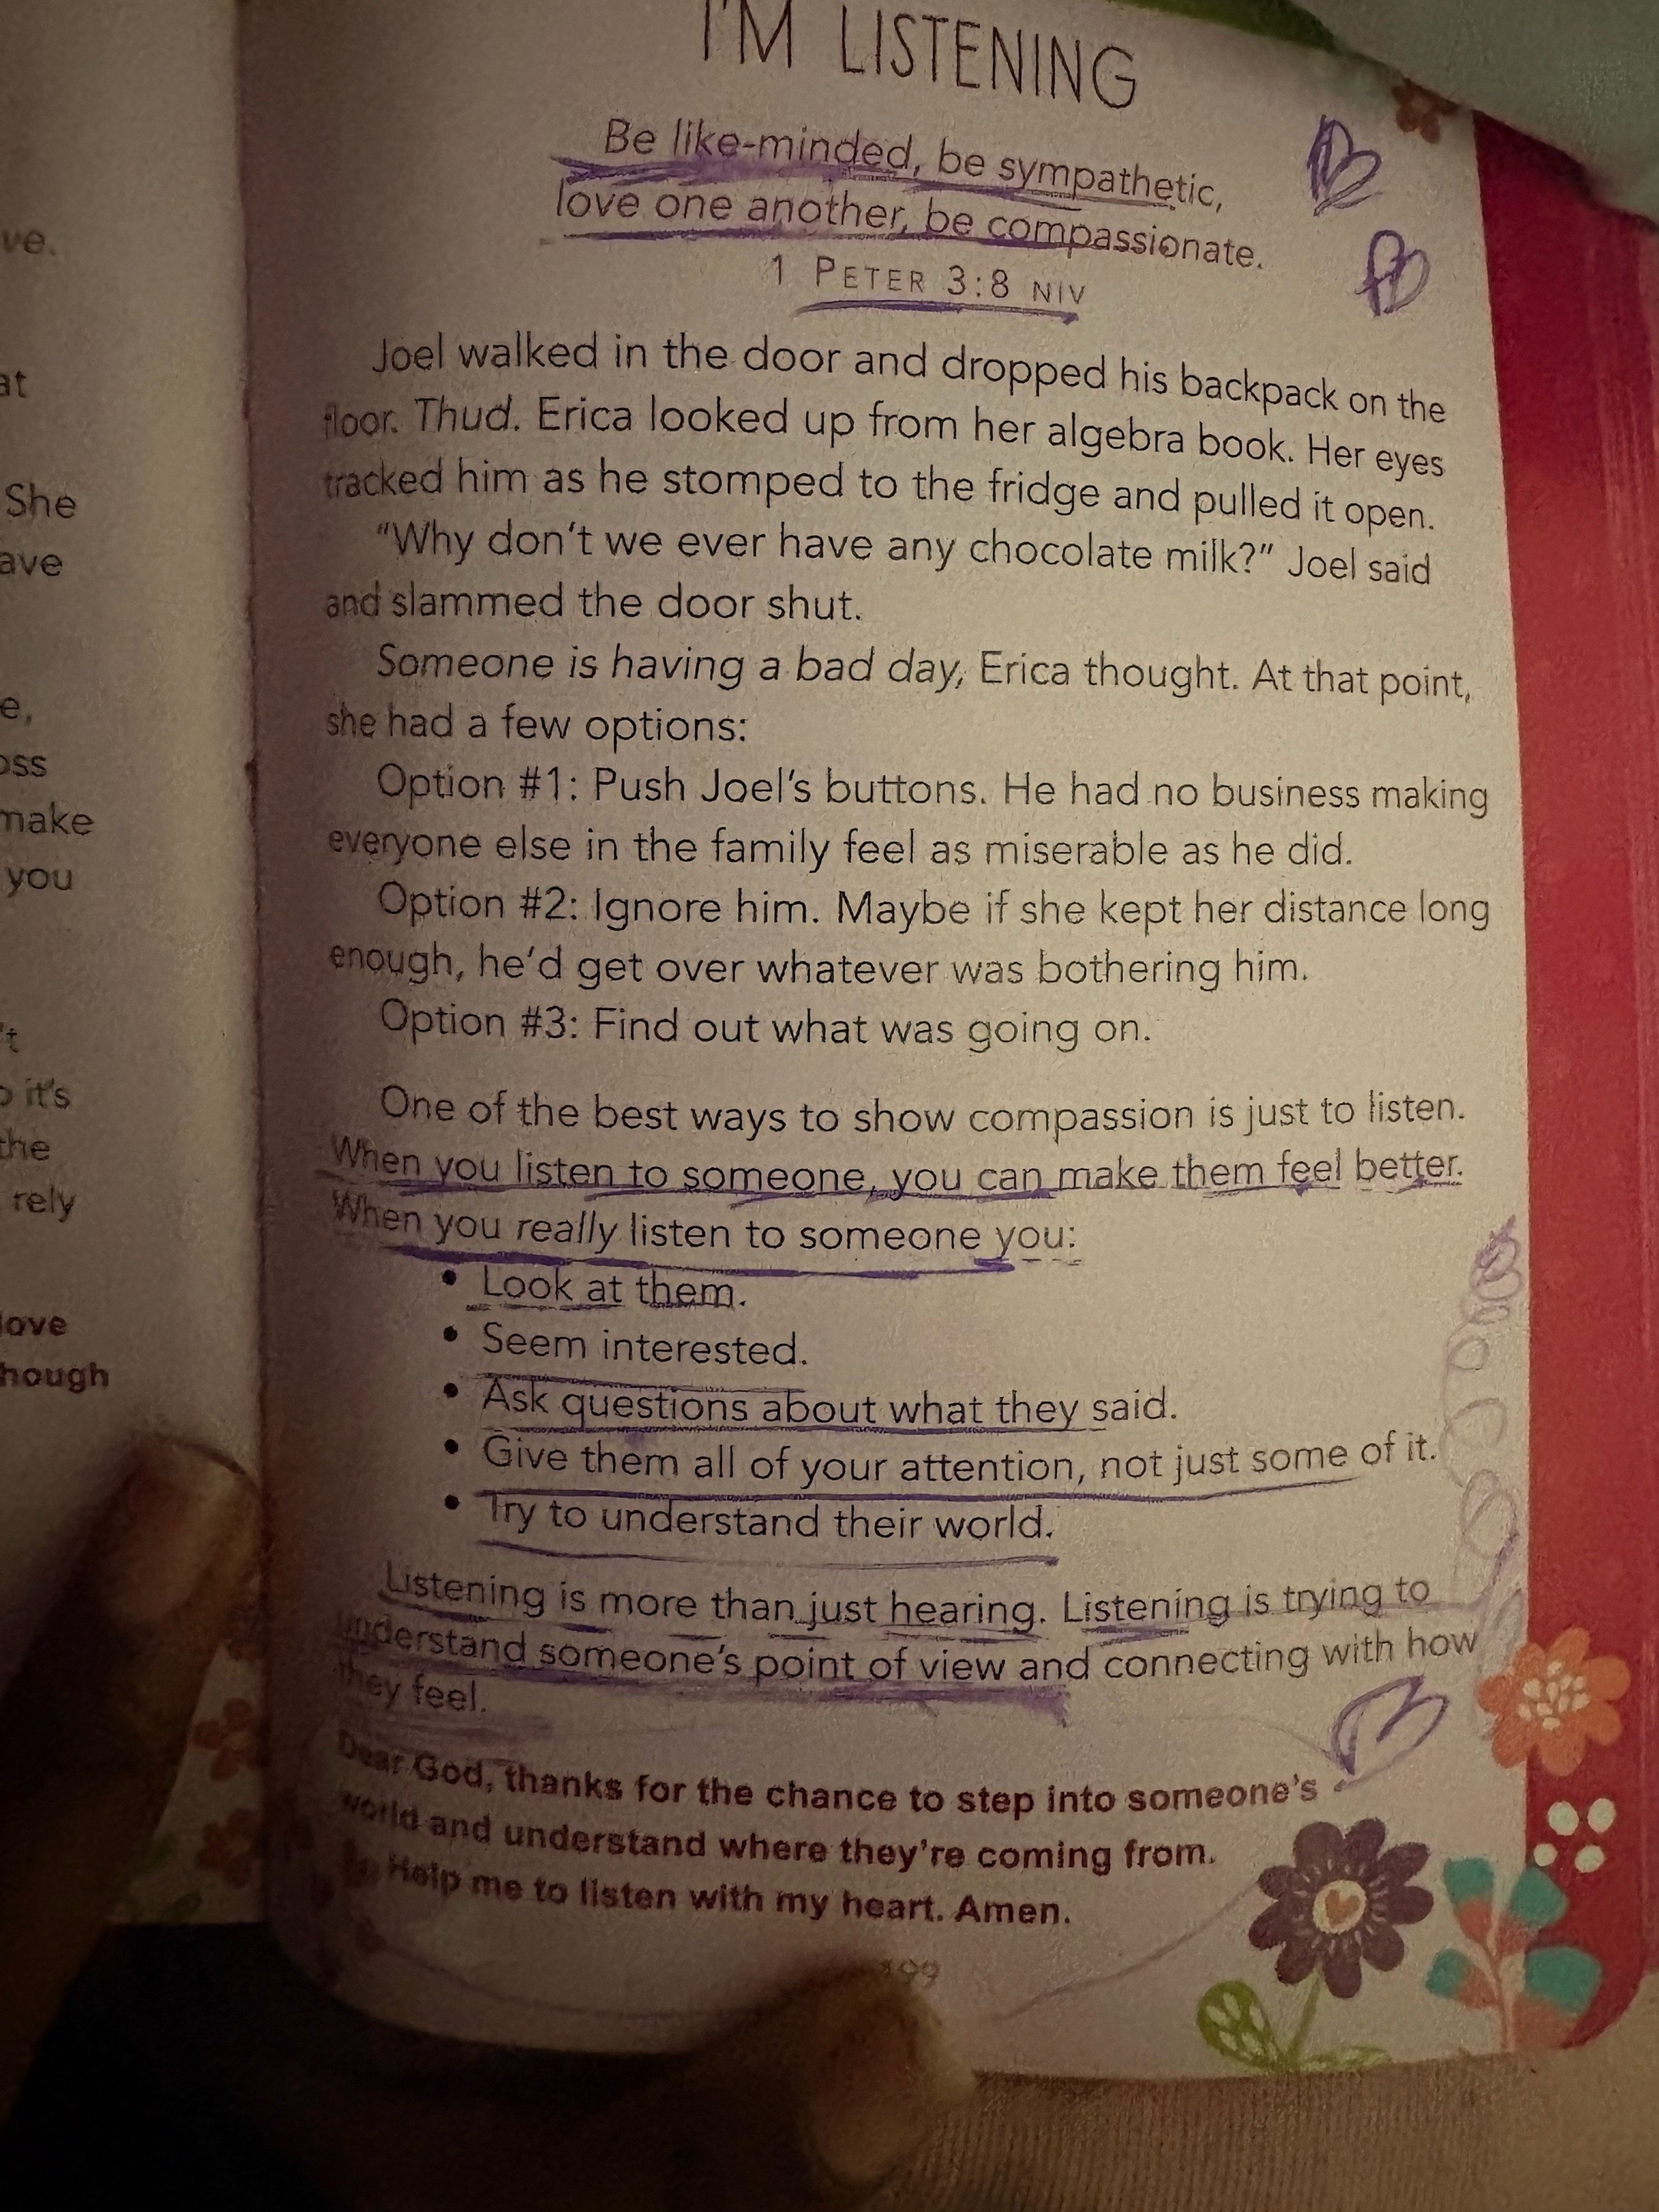 ve.
at
She
ave
e,
oss
make
you
't
o it's
the
rely
love
hough
I'M LISTENING
Be like-minded, be sympathetic,
love one another, be compassionate.
1 PETER 3:8 NIV
Joel walked in the door and dropped his backpack on the
floor. Thud. Erica looked up from her algebra book. Her eyes
tracked him as he stomped to the fridge and pulled it open.
“Why don’t we ever have any chocolate milk?” Joel said
and slammed the door shut.
Someone is having a bad day, Erica thought. At that point,
she had a few options:
Option #1: Push Joel’s buttons. He had no business making
everyone else in the family feel as miserable as he did.
Option #2: Ignore him. Maybe if she kept her distance long
enough, he’d get over whatever was bothering him.
Option #3: Find out what was going on.
One of the best ways to show compassion is just to listen.
When you listen to someone, you can make them feel better.
When you really listen to someone you:
• Look at them.
• Seem interested.
• Ask questions about what they said.
• Give them all of your attention, not just some of it.
• Try to understand their world.
Listening is more than just hearing. Listening is trying to
understand someone’s point of view and connecting with how
they feel.
Dear God, thanks for the chance to step into someone’s
world and understand where they’re coming from.
Help me to listen with my heart. Amen.